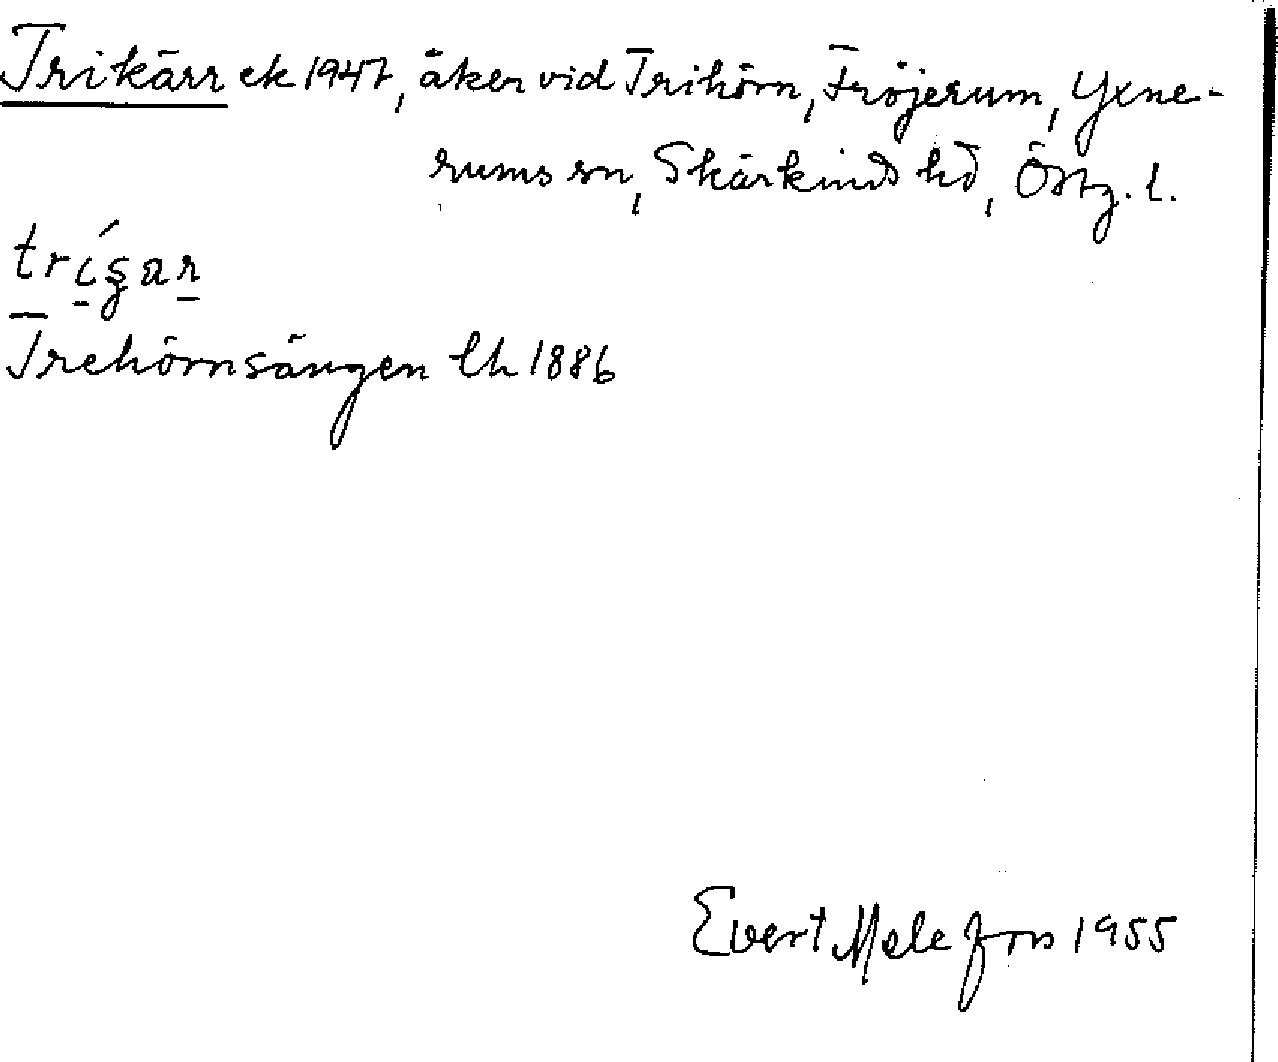 Trikärr ek 1947, åker vid Trihörn, Fröjerum, Yxne-
rums sn, Skärkinds hd, Östg. l.
Trehörnsängen lh 1886
Evert Melefors 1955